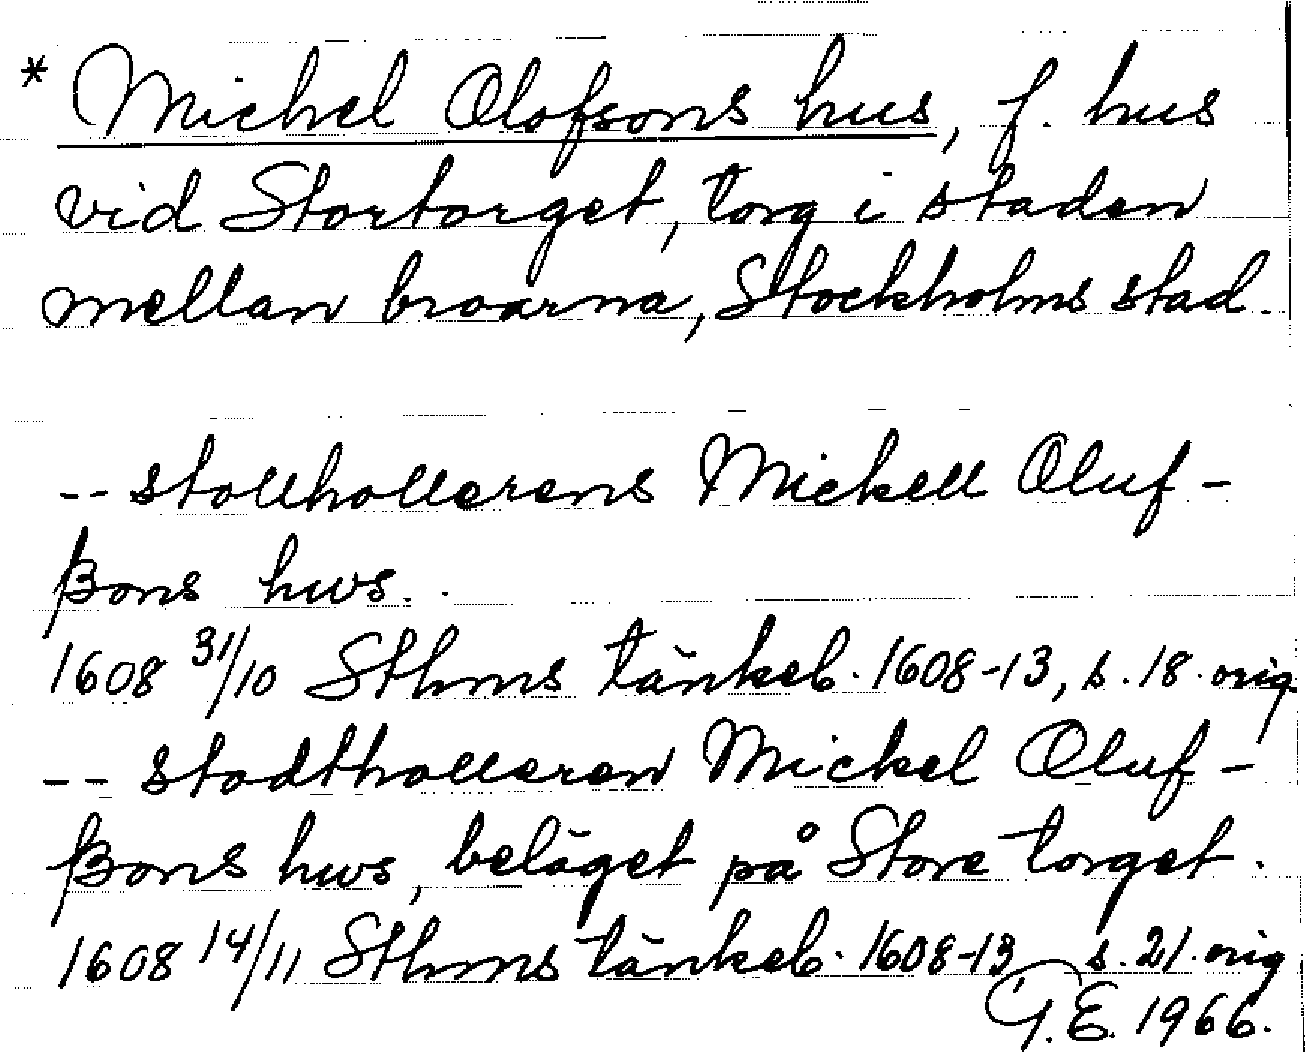 * Michel Olofsons hus, f. hus
vid Stortorget, torg i staden
mellan broarna, Stockholms stad.
-- stollhollerens Mickell Oluf-
ßons hws.
1608 31/10 Sthms tänkeb. 1608-13, s. 18. orig.
-- stadtholleren Mickel Oluf-
ßons hws, beläget på Store torget.
1608 14/11 Sthms tänkeb. 1608-13 s. 21. orig
G.E. 1966.